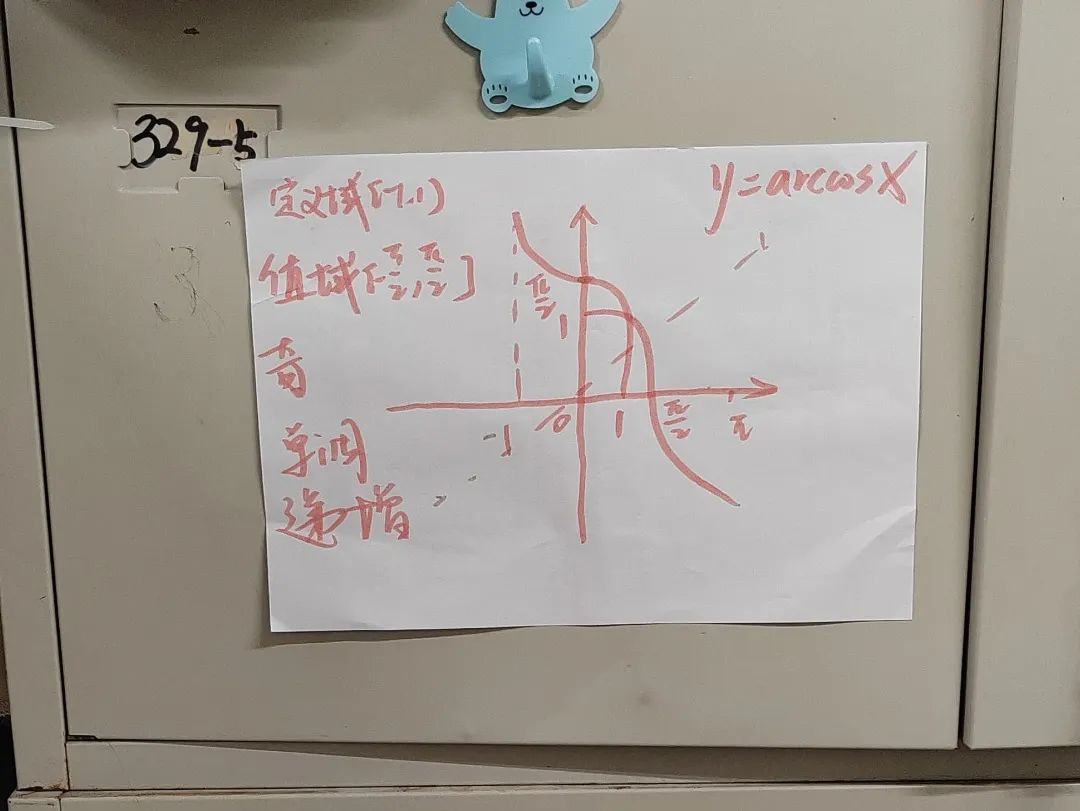 329-5
3
y=arccosx
定义域[-1,1)
值域[-π/2,π/2]
奇
单调
递增
π/2
1
-1
0
1
π/2
π